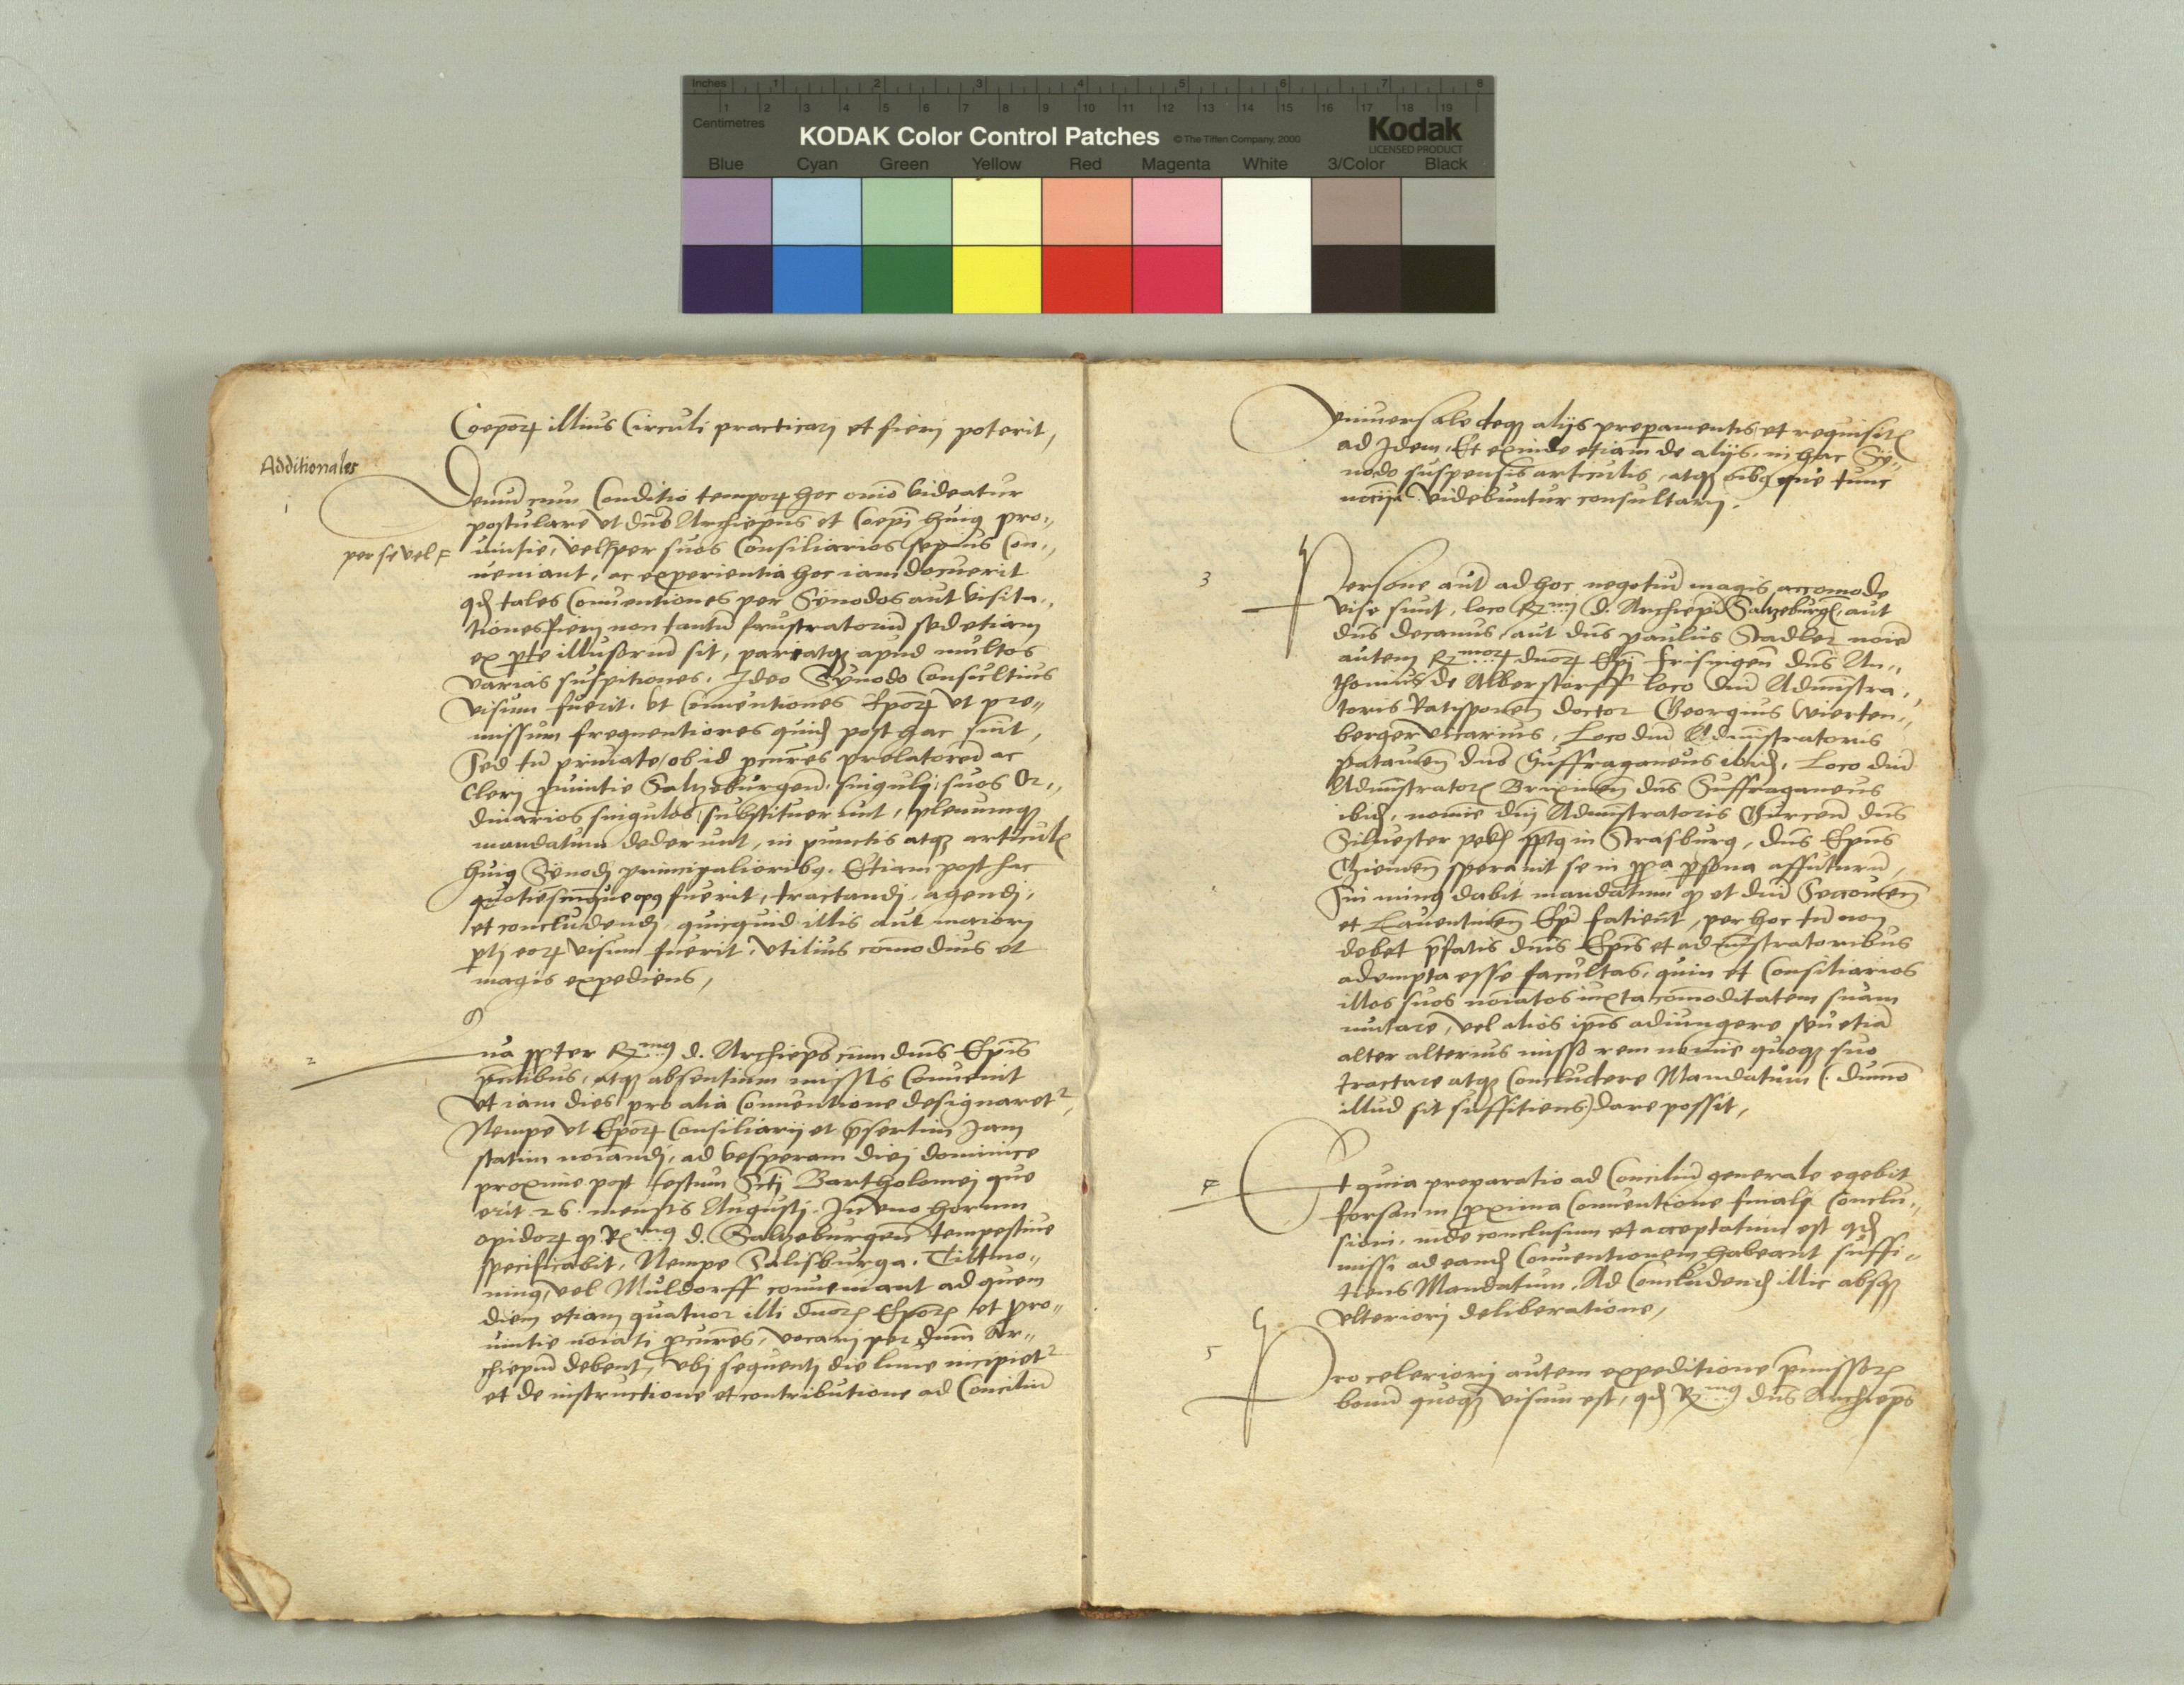 Inches 1 2 3 4 5 6 7 8
1 2 3 4 5 6 7 8 9 10 11 12 13 14 15 16 17 18 19
Centimetres
KODAK Color Control Patches © The Tiffen Company, 2000 Kodak
LICENSED PRODUCT
Blue Cyan Green Yellow Red Magenta White 3/Color Black
Coepor illius Circuli practicari et fieri poterit,
Additionales
1
Demu cum Conditio tempor hoc omnio videatur
postulare ut dns Archiepus et Coepi huiq pro„
per se vel
uintie, vel per suos Consiliarios sepius Con„
ueniant, ac experientia hoc iam docuerit
qd tales Conuentiones per Synodos aut visita„
tiones fieri non tantu frustratoriu sed etiam
ex pte illusoriu sit, pariatq apud multos
varias suspitiones. Ideo Synodo Consultius
visum fuerit. ut Conuentiones Epor ut pre„
missum frequentiores quid post hac sint,
Sed tn priuate ob id pcures prelatorum ac
Cleri puintie Saltzeburgen. singuli suos Or„
dinarios singulos substituerunt, plenumq
mandatum dederunt, in punctis atq articul
huiq Synodi principaliorib. Etiam post hac
quotiescunque opq fuerit, tractandi, agendi,
et concludendi quicquid illis aut maiori
pti eor visum fuerit. Utilius comodius et
magis expediens,
2
na ppter Rmq d. Archieps cum dnis Epis
pntibus, atq absentium missis Conuenit
ut iam dies pro alia Conuentione designaret
Nempe ut Epor Consiliarij et psertim Jam
statim noiandi, ad vesperam diei dominice
proxime post festum Scti Bartholomei que
erit 26. mensis Augusti. In uno horum
opidor qp Rmq d. Saltzeburgen tempestiue
specificabit, Nempe Salisburga. Tittmo„
ning, vel Muldorff conueniant ad quem
diem etiam quatuor illi dnor Epor et pro„
uintie noiati pcures, vocari per dnm Ar„
chiepm debent, ubi sequenti die lune incipiet
et de instructione et contributione ad Conciliu
Uniuersale deq alijs preparamentis et requisit
ad Idem. Et exinde etiam de alijs, in hac Sy„
nodo suspensis articulis, atq oibq que tunc
videbuntur consultari.
3
Persone aut ad hoc negotiu magis accomode
vise sunt, loco Rmi d. Archiepi Saltzeburg, aut
dns decanus, aut dns paulus Stadler noie
autem Rmor dnor Epi Frisingen dns An„
thonius de Alberstorff loco dni Administra„
toris Ratisponen doctor Georgius Wierten„
berger vicarius, Loco dni Administratoris
patauien dns Suffraganeus ibid, Loco dni
Administrator Brixinen dns Suffraganeus
ibid, nomie dni Administratoris Gurcen dns
Siluester in Strasburg, dns Epus
Chiemen sperauit se in ppa psona affuturu,
Sin minq dabit mandatum qp et dni Seccouien
et Lauentinen Epi fatient, per hoc tn non
debet pfatis dnis Epis et administratoribus
adempta esse facultas, quin et Consiliarios
illos suos noiatos iuxta comoditatem suam
mutare, vel alios ipis adiungere seu etia
alter alterius misso rem nomie quoq suo
tractare atq Concludere Mandatum (dumo
illud sit suffitiens) dare possit,
4
Et quia preparatio ad Conciliu generale egebit
forsan in pxima Conuentione finali Conclu„
sioni, inde conclusum et acceptatum est qd
missi ad eand Conuentionem habeant suffi„
tiens Mandatum. Ad Concludend illic absq
ulteriori deliberatione,
5
Pro celeriori autem expeditione pmissor
bonu quoq visum est, qd Rmq dns Archieps